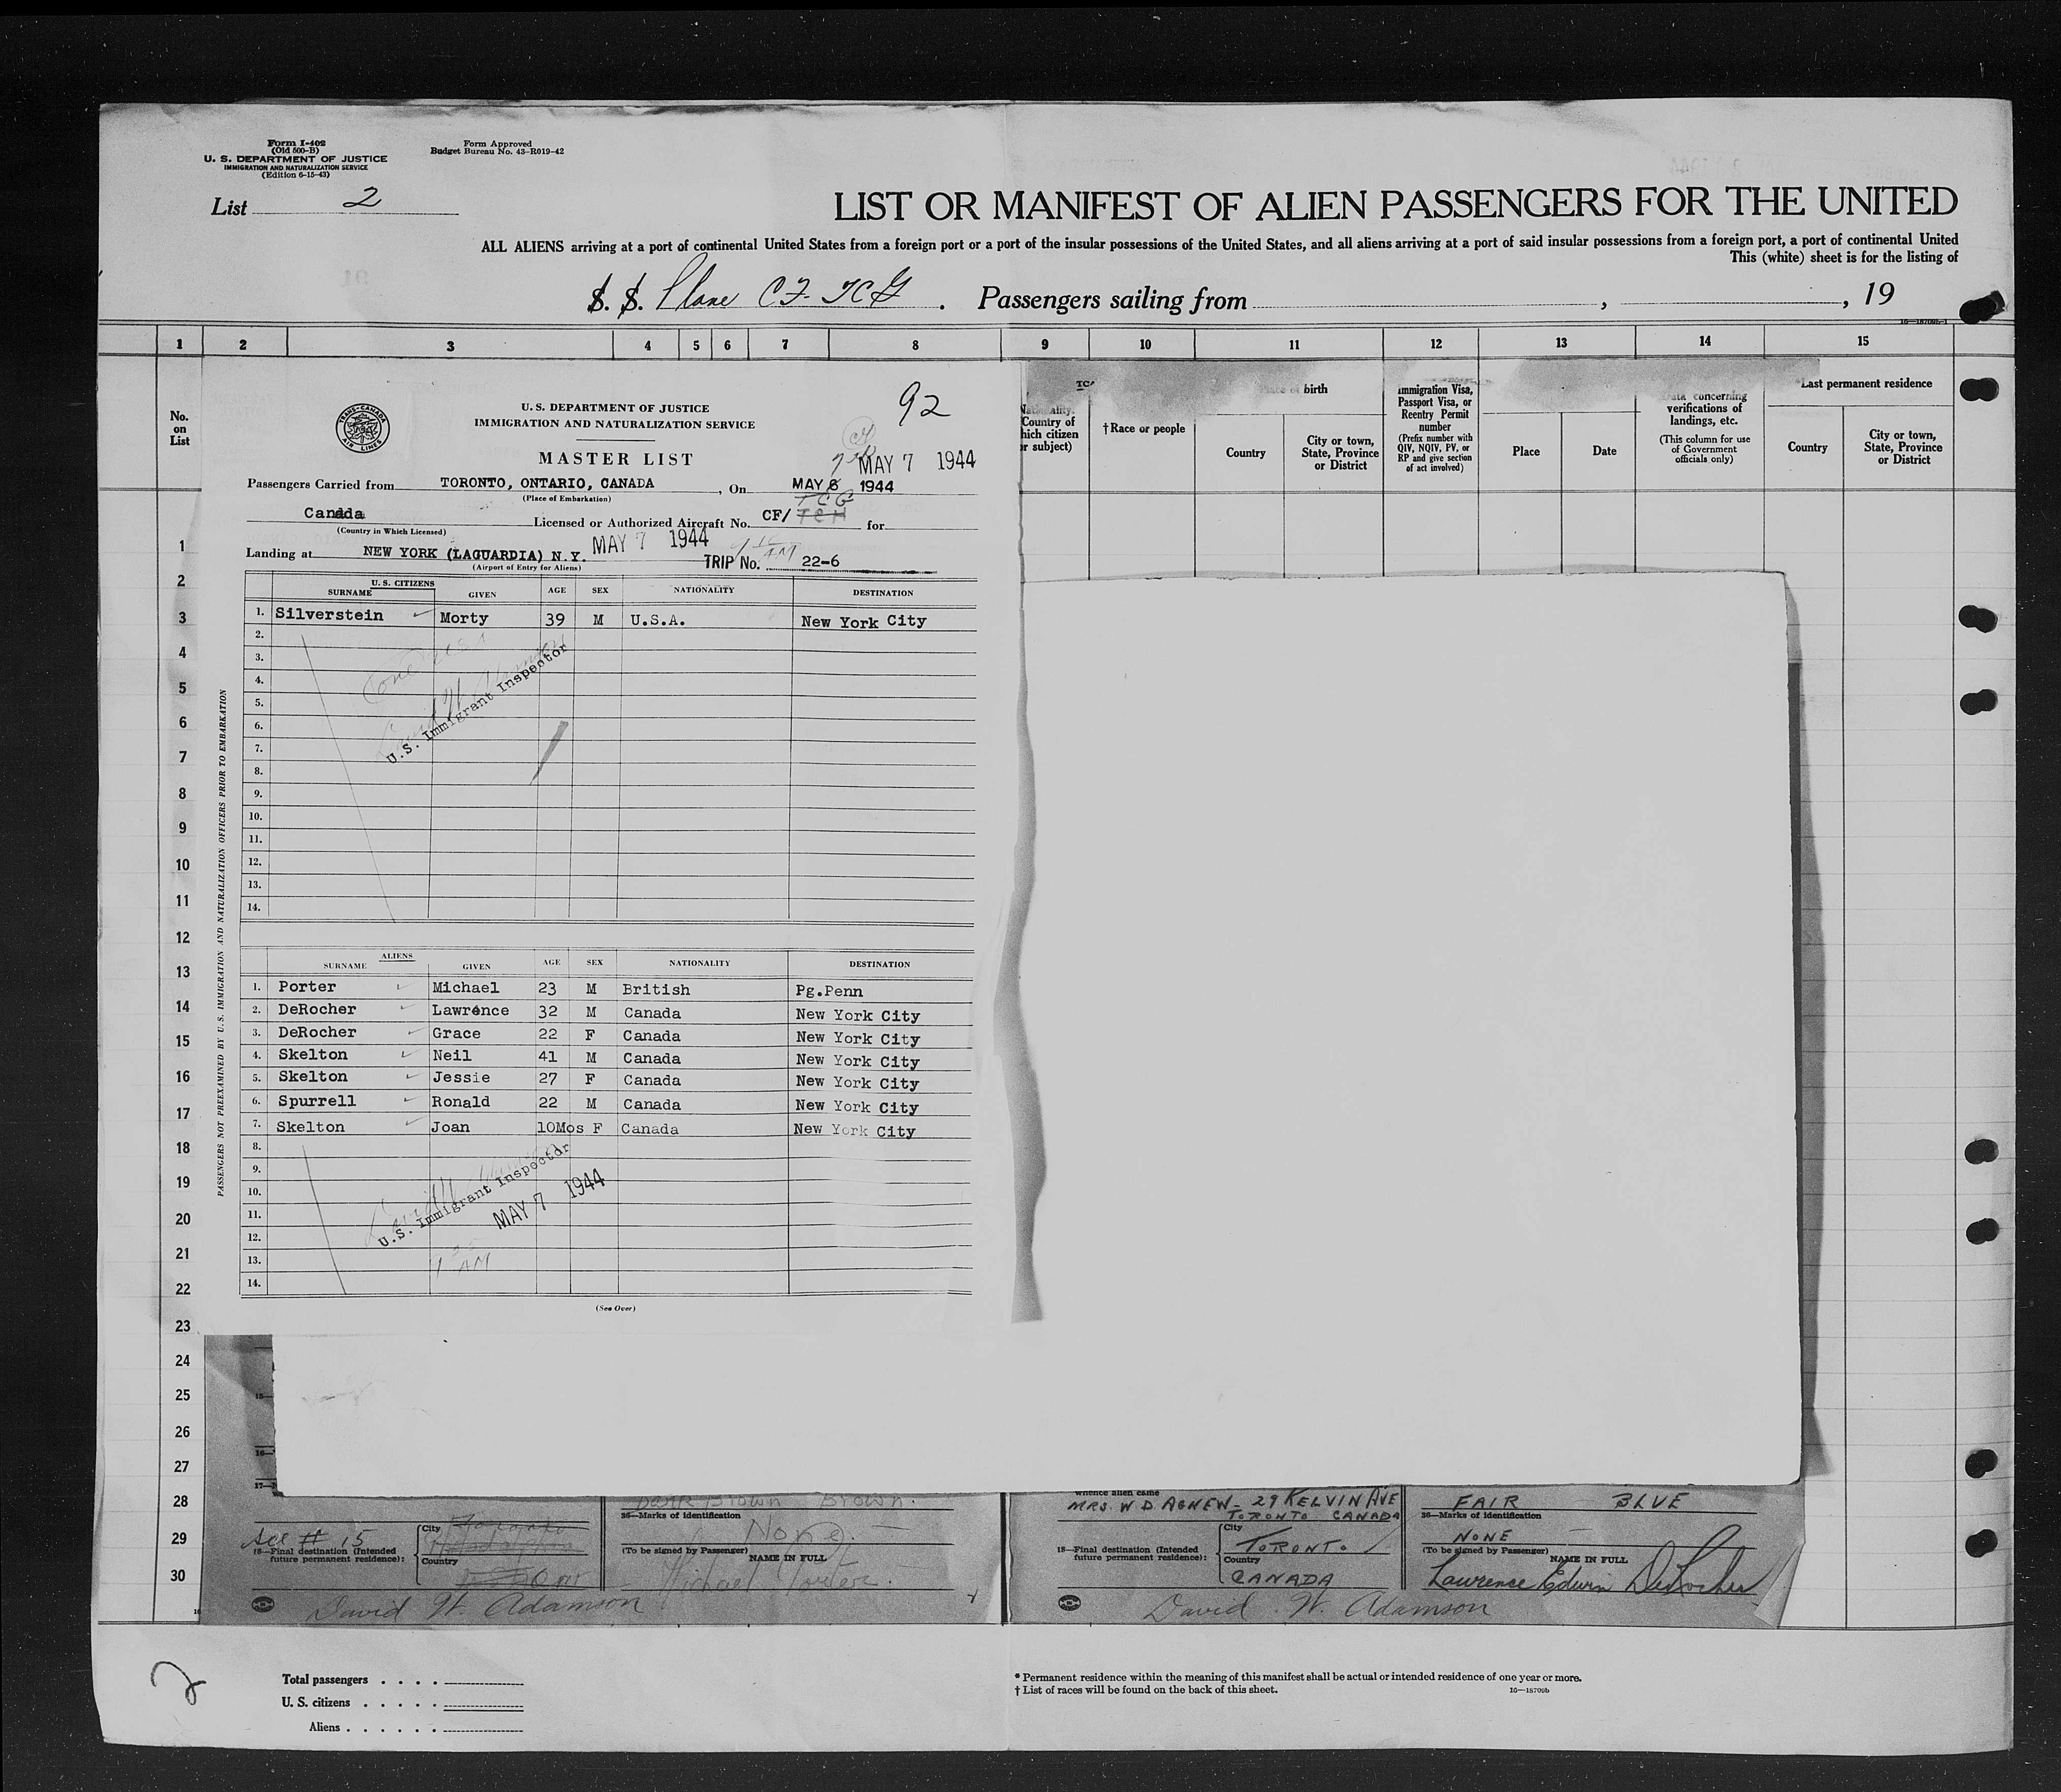 Form I-402
(Old 500-B)
U. S. DEPARTMENT OF JUSTICE
IMMIGRATION AND NATURALIZATION SERVICE
(Edition 6-15-43)
Form Approved
Budget Bureau No. 43-R019-42
List 2
LIST OR MANIFEST OF ALIEN PASSENGERS FOR THE UNITED
ALL ALIENS arriving at a port of continental United States from a foreign port or a port of the insular possessions of the United States, and all aliens arriving at a port of said insular possessions from a foreign port, a port of continental United
This (white) sheet is for the listing of
S. S. Plane CF-TCG. Passengers sailing from , , 19
1 2 3 4 5 6 7 8 9 10 11 12 13 14 15
No. on List
Country of
†Race or people
Place of birth
Country
City or town, State, Province or District
Immigration Visa, Passport Visa, or Reentry Permit number
(Prefix number with QIV, NQIV, PV, or RP and give section of act involved)
Place
Date
Data concerning verifications of landings, etc.
(This column for use of Government officials only)
Last permanent residence
Country
City or town, State, Province or District
TRANS-CANADA AIR LINES
U. S. DEPARTMENT OF JUSTICE
IMMIGRATION AND NATURALIZATION SERVICE
92
MASTER LIST
MAY 7 1944
Passengers Carried from TORONTO, ONTARIO, CANADA, On MAY 6 1944
(Place of Embarkation)
TCG
Canada Licensed or Authorized Aircraft No. CF/ TCH for
(Country in Which Licensed)
MAY 7 1944
Landing at NEW YORK (LAGUARDIA) N.Y. TRIP No. 22-6
(Airport of Entry for Aliens)
U. S. CITIZENS
SURNAME GIVEN AGE SEX NATIONALITY DESTINATION
1. Silverstein Morty 39 M U.S.A. New York City
2.
3.
4.
5.
6.
7.
8.
9.
10.
11.
12.
13.
14.
U.S. Immigrant Inspector
ALIENS
SURNAME GIVEN AGE SEX NATIONALITY DESTINATION
1. Porter Michael 23 M British Pg.Penn
2. DeRocher Lawrence 32 M Canada New York City
3. DeRocher Grace 22 F Canada New York City
4. Skelton Neil 41 M Canada New York City
5. Skelton Jessie 27 F Canada New York City
6. Spurrell Ronald 22 M Canada New York City
7. Skelton Joan 10Mos F Canada New York City
8.
9.
10.
11.
12.
13.
14.
U.S. Immigrant Inspector
MAY 7 1944
AM
(See Over)
PASSENGERS NOT PREEXAMINED BY U. S. IMMIGRATION AND NATURALIZATION OFFICERS PRIOR TO EMBARKATION
1
2
3
4
5
6
7
8
9
10
11
12
13
14
15
16
17
18
19
20
21
22
23
24
25
26
27
28
29
30
Dark Brown Brown.
36—Marks of identification
None.
See # 15
18—Final destination (Intended future permanent residence):
City
Country
(To be signed by Passenger) NAME IN FULL
Michael Porter.
David W. Adamson
whence alien came
MRS. W. D. AGNEW - 29 KELVIN AVE
TORONTO CANADA
18—Final destination (Intended future permanent residence):
City
TORONTO
Country
CANADA
FAIR BLUE
36—Marks of identification
NONE
(To be signed by Passenger) NAME IN FULL
Lawrence Edwin DeRocher
David W. Adamson
2
Total passengers
U. S. citizens
Aliens
* Permanent residence within the meaning of this manifest shall be actual or intended residence of one year or more.
† List of races will be found on the back of this sheet.
16—18709b